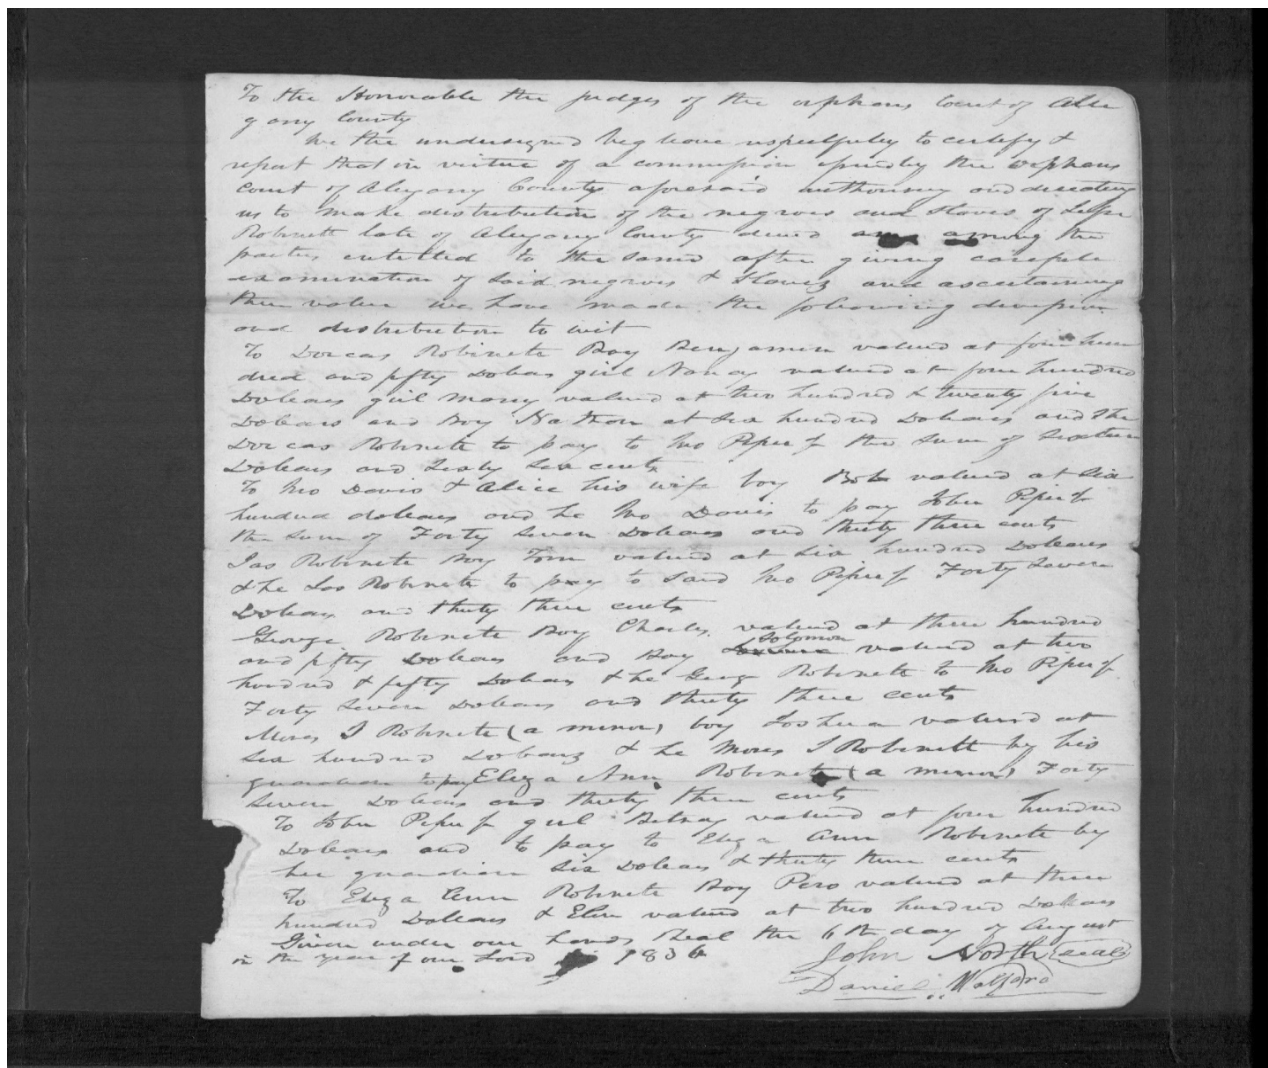 To the Honorable the judges of the orphans Court of Alle
gany County
We the undersigned beg leave respectfuley to certify &
report that in virtue of a commission issued by the orphans
court of Alegany County aforesaid authorising and directing
us to make distribution of the negroes and slaves of
Robinett late of Alegany County decd among the
parties entitled to the same after giving carefule
examination of said negroes & Slaves and ascertaining
their value we have made the following division
and distribution to wit
To Dorcas Robinette Boy Benjamin valued at four hun
dred and fifty Dolears girl Nancy valued at four hundred
Dolears girl Mary valued at two hundred & twenty five
Dolears and boy Nathan at six hundred Dolears and the
Dorcas Robinette to pay to Jno Piper Jr the sum of sixteen
Dolears and sixty six cents
To Jno Davis & Alice his wife boy Bob valued at six
hundred dolears and he Jno Davis to pay John Piper Jr
the sum of Forty seven Dolears and thirty three cents
Jas Robinette Boy Tom valued at six hundred Dolears
& he Jas Robinette to pay to said Jno Piper Jr Forty seven
Dolears and thirty three cents
George Robinette Boy Charles valued at three hundred
and fifty Dolears and Boy Solomon valued at two
hundred & fifty Dolears & he Georg Robinette to Jno Piper Jr
Forty seven Dolears and thirty three cents
Moses I Robinette (a minor) boy Joshua valued at
six hundred Dolears & he Moses I Robinett by his
guardian to pay Eliza Ann Robinette (a minor) Forty
seven Dolears and thirty three cents
To John Piper Jr girl Betsey valued at four hundred
Dolears and to pay to Eliza Ann Robinette by
her guardian six Dolears & thirty three cents
To Eliza Ann Robinette Boy Pero valued at three
hundred Dolears & valued at two hundred Dollars
Given under our hands & seal the 6th day of August
in the year of our Lord 1836
John North (seal)
Daniel